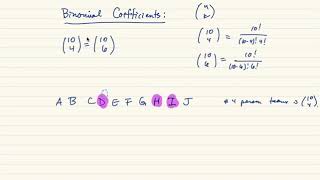 Binomial Coefficients:
(n k)
(10 4) = (10 6)
(10 4) = 10! / (10-4)! 4!
(10 6) = 10! / (10-6)! 6!
A B C D E F G H I J
# 4 person teams is (10 4)